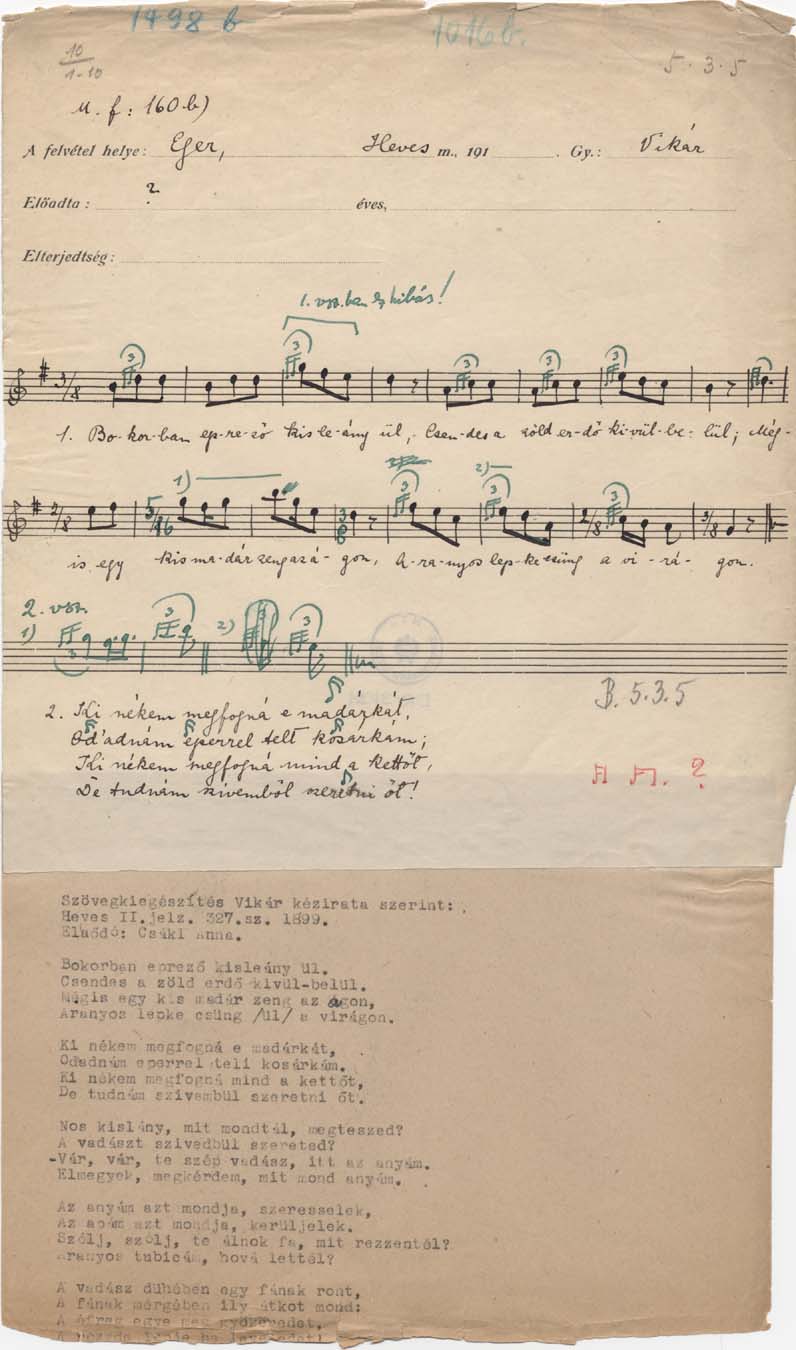 1498 b 1016 b.
10
1-10
5. 3. 5
M. f: 160.b)
A felvétel helye: Eger, Heves m., 191 . Gy.: Vikár
Előadta: ? éves,
Elterjedtség:
1. vsz. ban ez hibás!
3 3 3 3 3 3
3/8
1. Bo-kor-ban ep-re-ző kis le-ány ül, Csen-des a zöld er-dő ki-vül-be-lül; Még-
1) 2)
2/8 5/16 3/8 2/8 3/8
is egy kis ma-dár zeng az á-gon, A-ra-nyos lep-ke csüng a vi-rá-gon.
2. vsz.
1) 3 3 2) 3
B. 5.3.5
2. Ki nékem megfogná e madárkát,
Od'adnám eperrel telt kosárkám;
Ki nékem megfogná mind a kettőt,
De tudnám szívemből szeretni őt!
?
Szövegkiegészítés Vikár kézirata szerint:
Heves II.jelz. 327.sz. 1899.
Előadó: Csáki Anna.
Bokorban eprező kisleány ül.
Csendes a zöld erdő kivül-belül.
Mégis egy kis madár zeng az ágon,
Aranyos lepke csüng /ül/ a virágon.
Ki nékem megfogná e madárkát,
Odadnám eperrel teli kosárkám.
Ki nékem megfogná mind a kettőt,
De tudnám szivembül szeretni őt.
Nos kislány, mit mondtál, megteszed?
A vadászt szivedbül szereted?
-Vár, vár, te szép vadász, itt az anyám.
Elmegyek, megkérdem, mit mond anyám.
Az anyám azt mondja, szeresselek,
Az apám azt mondja, kerüljelek.
Szólj, szólj, te álnok fa, mit rezzentél?
Aranyos tubicám, hová lettél?
A vadász dühében egy fának ront,
A fának mérgében ily átkot mond:
A egye meg gyökeredet,